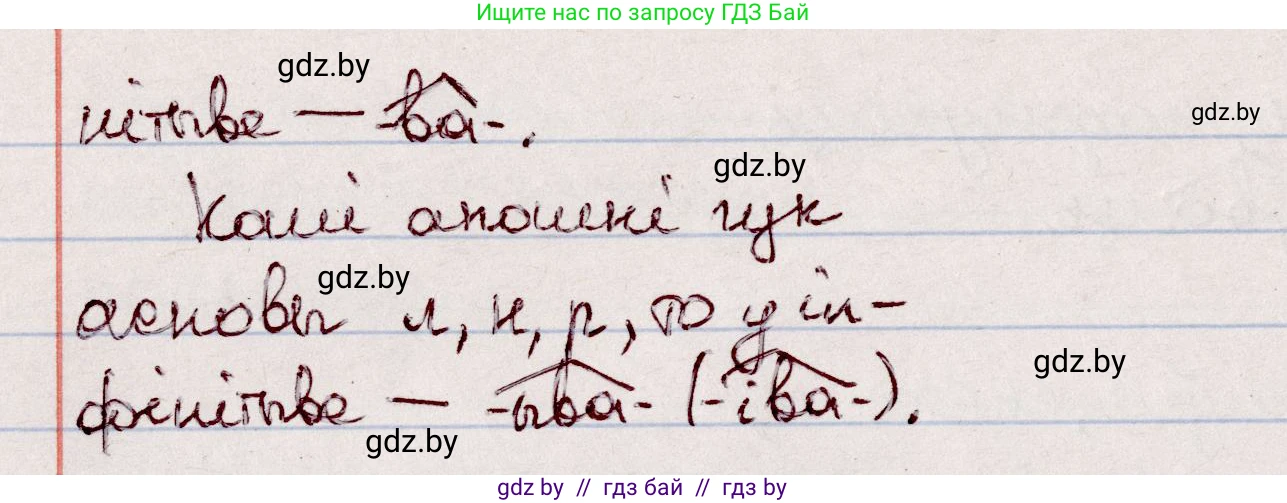 Ищите нас по запросу ГДЗ Бай
gdz.by
нітыве — -ва-.
gdz.by
gdz.by
Калі апошні гук
gdz.by
асновы л, н, р, то у ін-
gdz.by
фінітыве — -ыва- (-іва-).
gdz.by
gdz by // гдз бай // гдз by